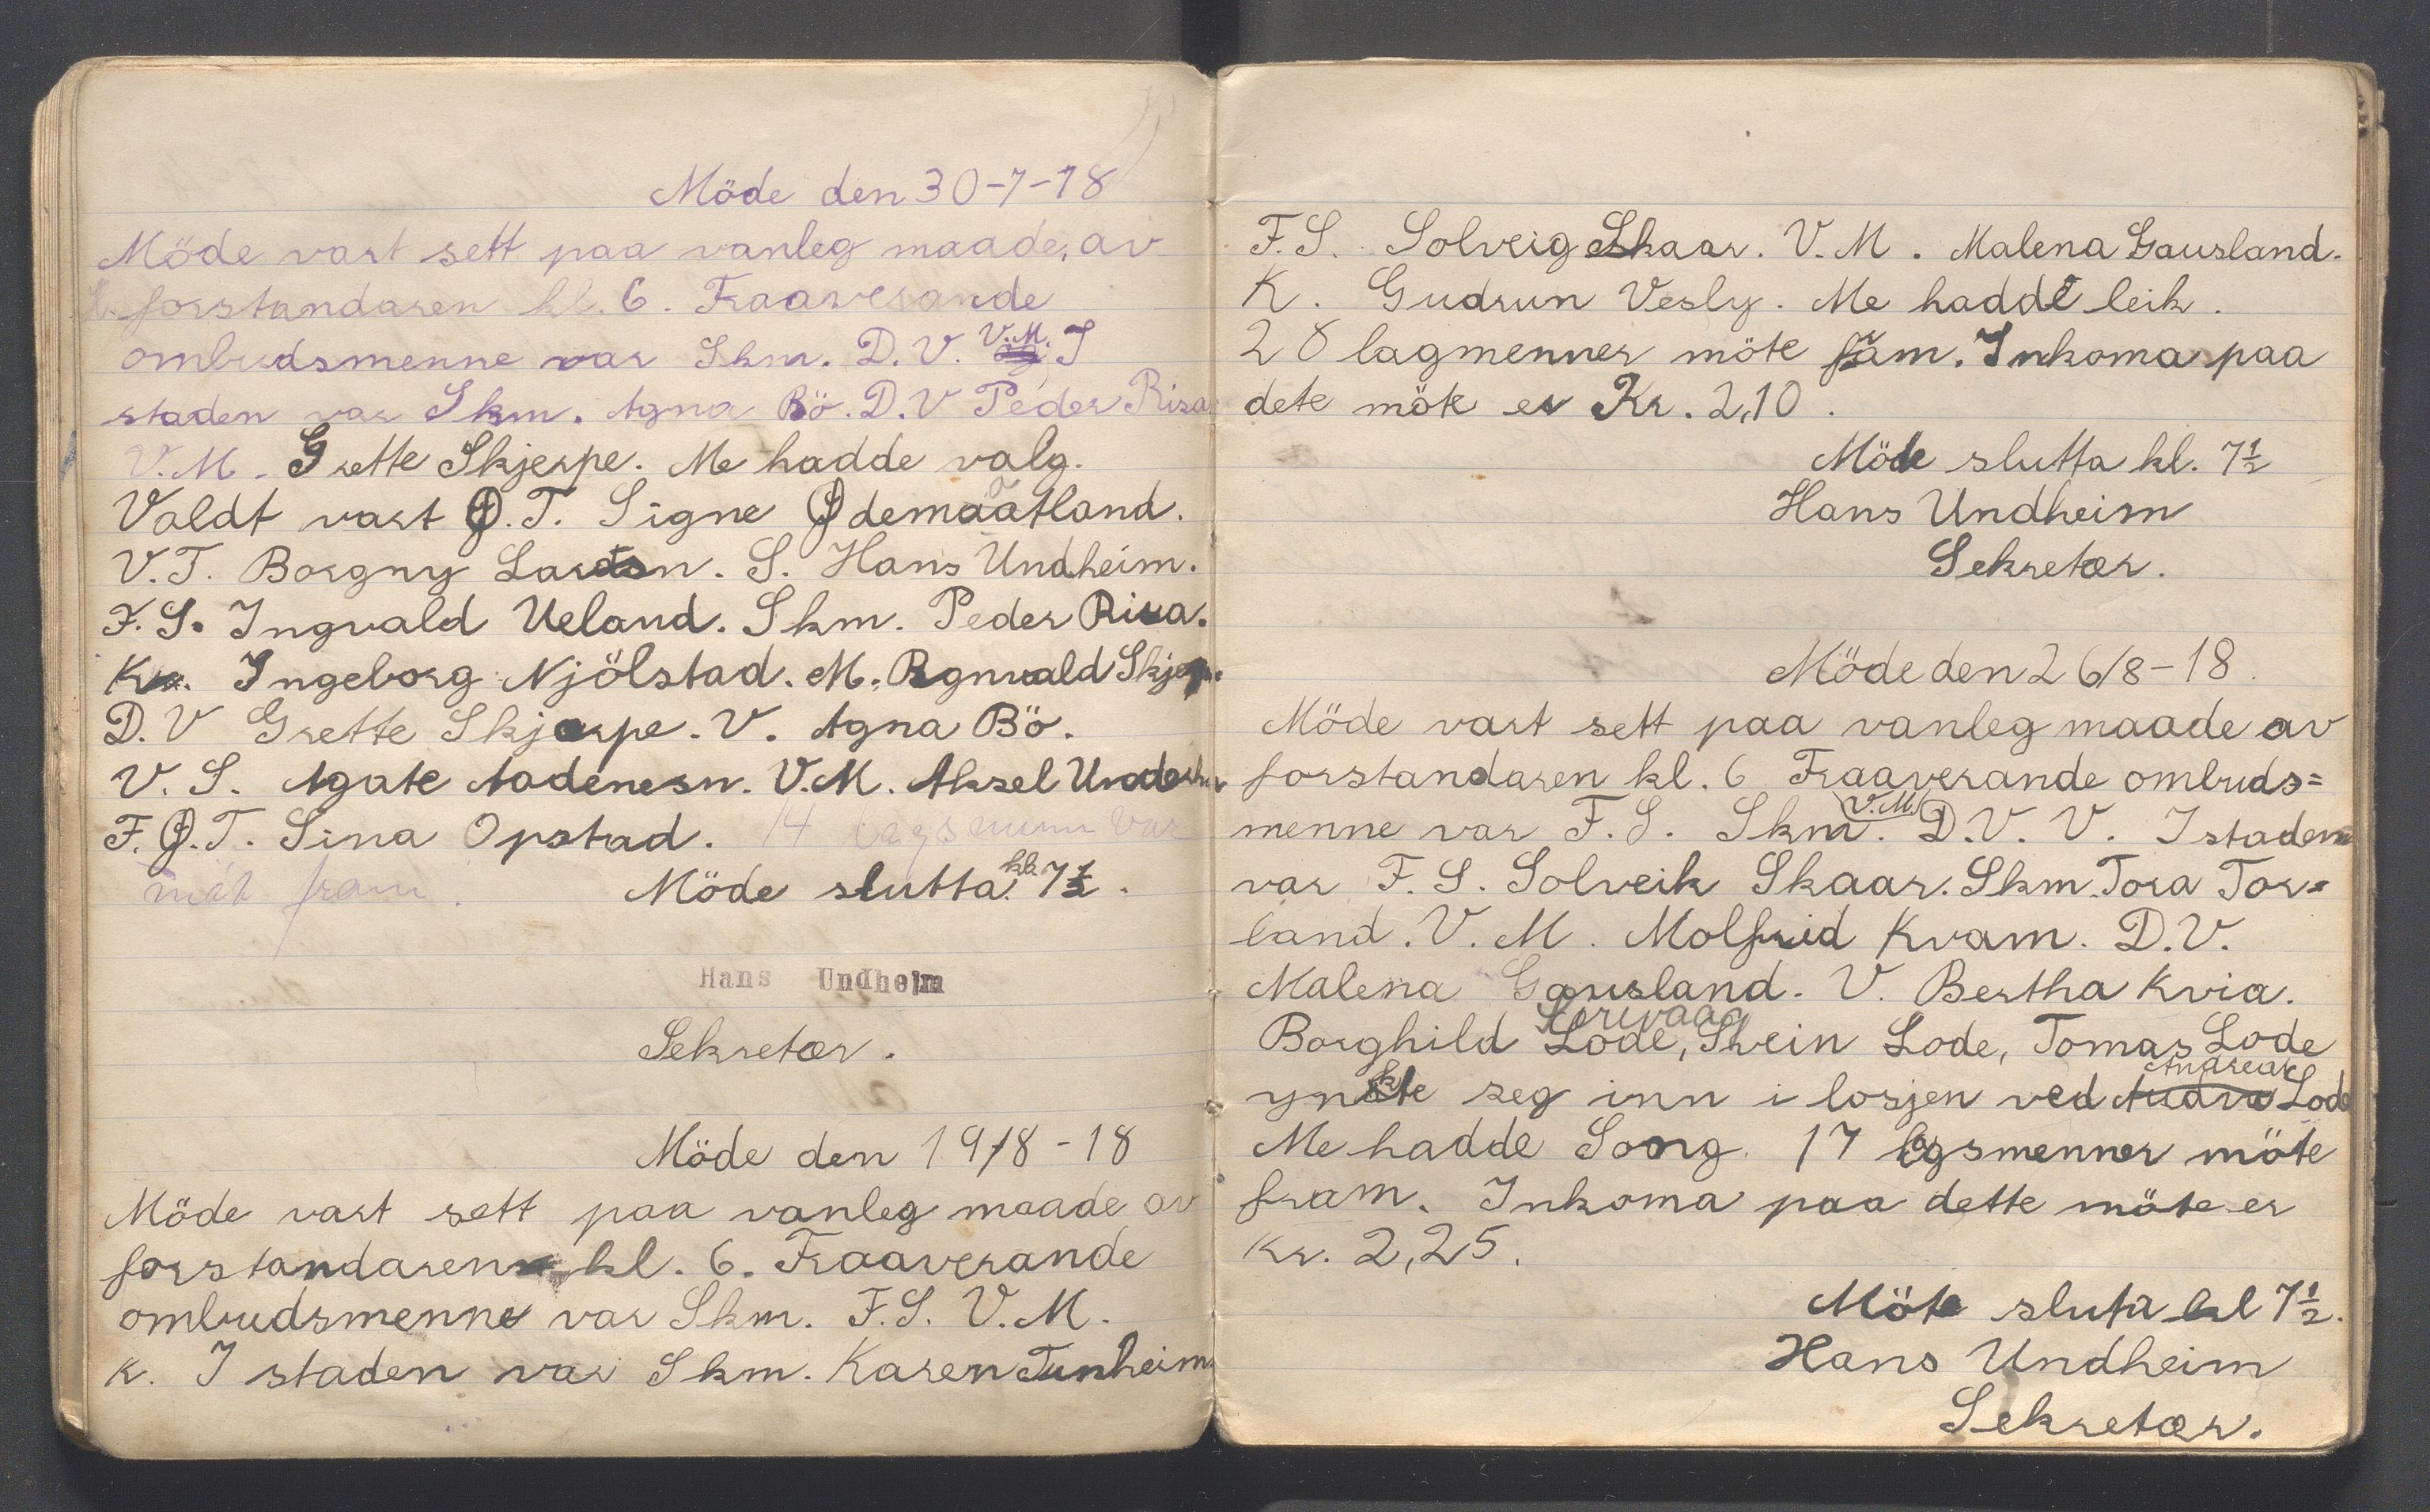 Möde den 30-7-18
Möde vart sett paa vanleg maade, av
forstandaren kl. 6. Fraaverande
ombudsmenne var Skm. D. V. V.M. I
staden var Skm. Agna Bö. D.V Peder Risa
V.M. Grette Skjerpe. Me hadde valg.
Valdt vart Ø.T. Signe Ødemaatland.
V.T. Borgny Larsen. S. Hans Undheim.
F.S. Ingvald Ueland. Skm. Peder Risa.
K. Ingeborg Njölstad. M. Rgnvald Skjerpe
D.V Grette Skjerpe. V. Agna Bö.
V.S. Agate Aadenesn. V.M. Aksel
F.Ø.T. Sina Opstad. 14 lagsmenn var
möt fram. Möde slutta kl. 7½.
Hans Undheim
Sekretær.
Möde den 19/8-18
Möde vart sett paa vanleg maade av
forstandaren kl. 6. Fraaverande
ombudsmenne var Skm. F.S. V.M.
K. I staden var Skm. Karen Tunheim
F.S. Solveig Skaar. V.M. Malena Gausland.
K. Gudrun Vesly. Me hadde leik.
28 lagmenner möte fram. Inkoma paa
dete möte er Kr. 2,10.
Möde slutta kl. 7½
Hans Undheim
Sekretær.
Möde den 26/8-18.
Möde vart sett paa vanleg maade av
forstandaren kl. 6 Fraaverande ombuds=
menne var F.S. Skm. V.M. D.V. V. I staden
var F.S. Solveik Skaar. Skm. Tora Tor=
land. V.M. Molfrid Kvam. D.V.
Malena Gausland. V. Bertha Kvia.
Borghild Lode, Svein Lode, Tomas Lode
ynskte seg inn i losjen ved Andreas Lode
Me hadde Song. 17 lagsmenner möte
fram. Inkoma paa dette möte er
Kr. 2,25.
Möte sluta kl 7½.
Hans Undheim
Sekretær.